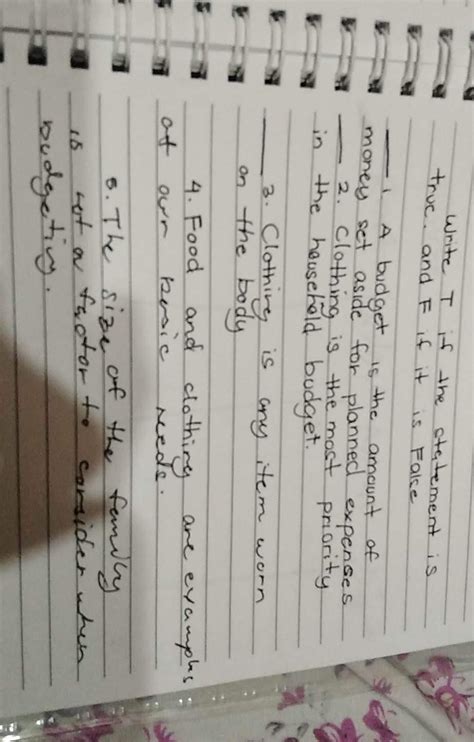 Write T if the statement is
true. and F if it is False
___ 1. A budget is the amount of
money set aside for planned expenses
___ 2. Clothing is the most priority
in the household budget.
___ 3. Clothing is any item worn
on the body
4. Food and clothing are examples
of our basic needs.
5. The size of the family
is not a factor to consider when
budgeting.